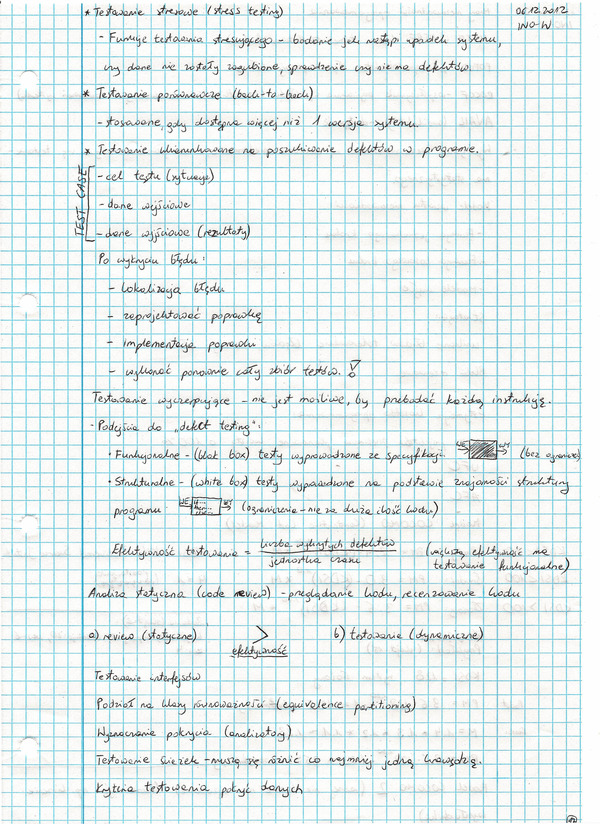 * Testowanie stresowe (stress testing)
06.12.2012
INO-W
- Funkcje testowania stresującego - badanie jak nastąpi upadek systemu,
czy dane nie zostały zagubione, sprawdzenie czy nie ma defektów.
* Testowanie porównawcze (back-to-back)
- stosowane, gdy dostępna więcej niż 1 wersja systemu
* Testowanie ukierunkowane na poszukiwanie defektów w programie.
TEST CASE
- cel testu (sytuacje)
- dane wejściowe
- dane wyjściowe (rezultaty)
Po wykryciu błędu:
- lokalizacja błędu
- zaprojektować poprawkę
- implementacja poprawki
- wykonać ponownie cały zbiór testów!
Testowanie wyczerpujące - nie jest możliwe, by przebadać każdą instrukcję.
- Podejścia do "defect testing":
• Funkcjonalne - (blak box) testy wyprowadzone ze specyfikacji. WE WY (bez ograniczeń)
• Strukturalne - (white box) testy wyprowadzone na podstawie znajomości struktury
programu WE WY (ograniczenie - nie za duża ilość kodu)
Efektywność testowania = liczba wykrytych defektów / jednostka czasu (większą efektywność ma
testowanie funkcjonalne)
Analiza statyczna (code review) - przeglądanie kodu, recenzowanie kodu
a) review (statyczne) > b) testowanie (dynamiczne)
efektywność
Testowanie interfejsów
Podział na klasy równoważności - (equivalence partitioning)
Wyznaczanie pokrycia (analizatory)
Testowanie ścieżek - muszą się różnić co najmniej jedną krawędzią.
Kryteria testowania pokryć danych